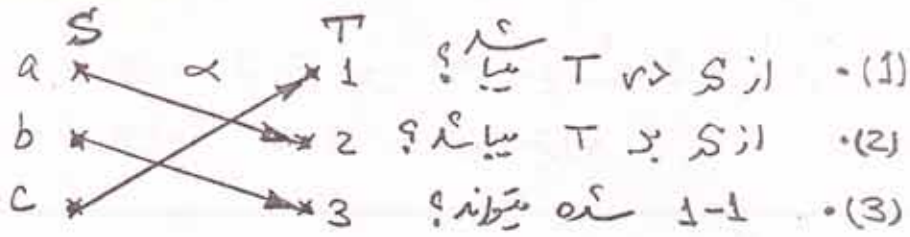 S α T
a 1 (1)• از S در T میباشد؟
b 2 (2)• از S بر T میباشد؟
c 3 (3)• 1-1 شده میتواند؟